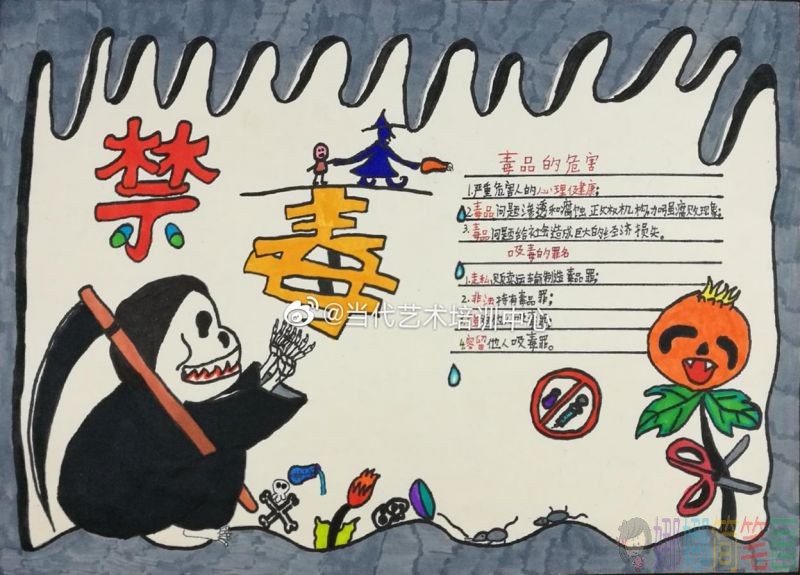 禁
毒
毒品的危害
1.严重危害人的心理健康;
2.毒品问题渗透和腐蚀正权机构加剧腐败现象;
3.毒品问题给社会造成巨大的经济损失。
吸毒的罪名
1.走私、贩卖运输制造毒品罪;
2.非法持有毒品罪;
@当代艺术培训中心
4.容留他人吸毒罪。
简笔画